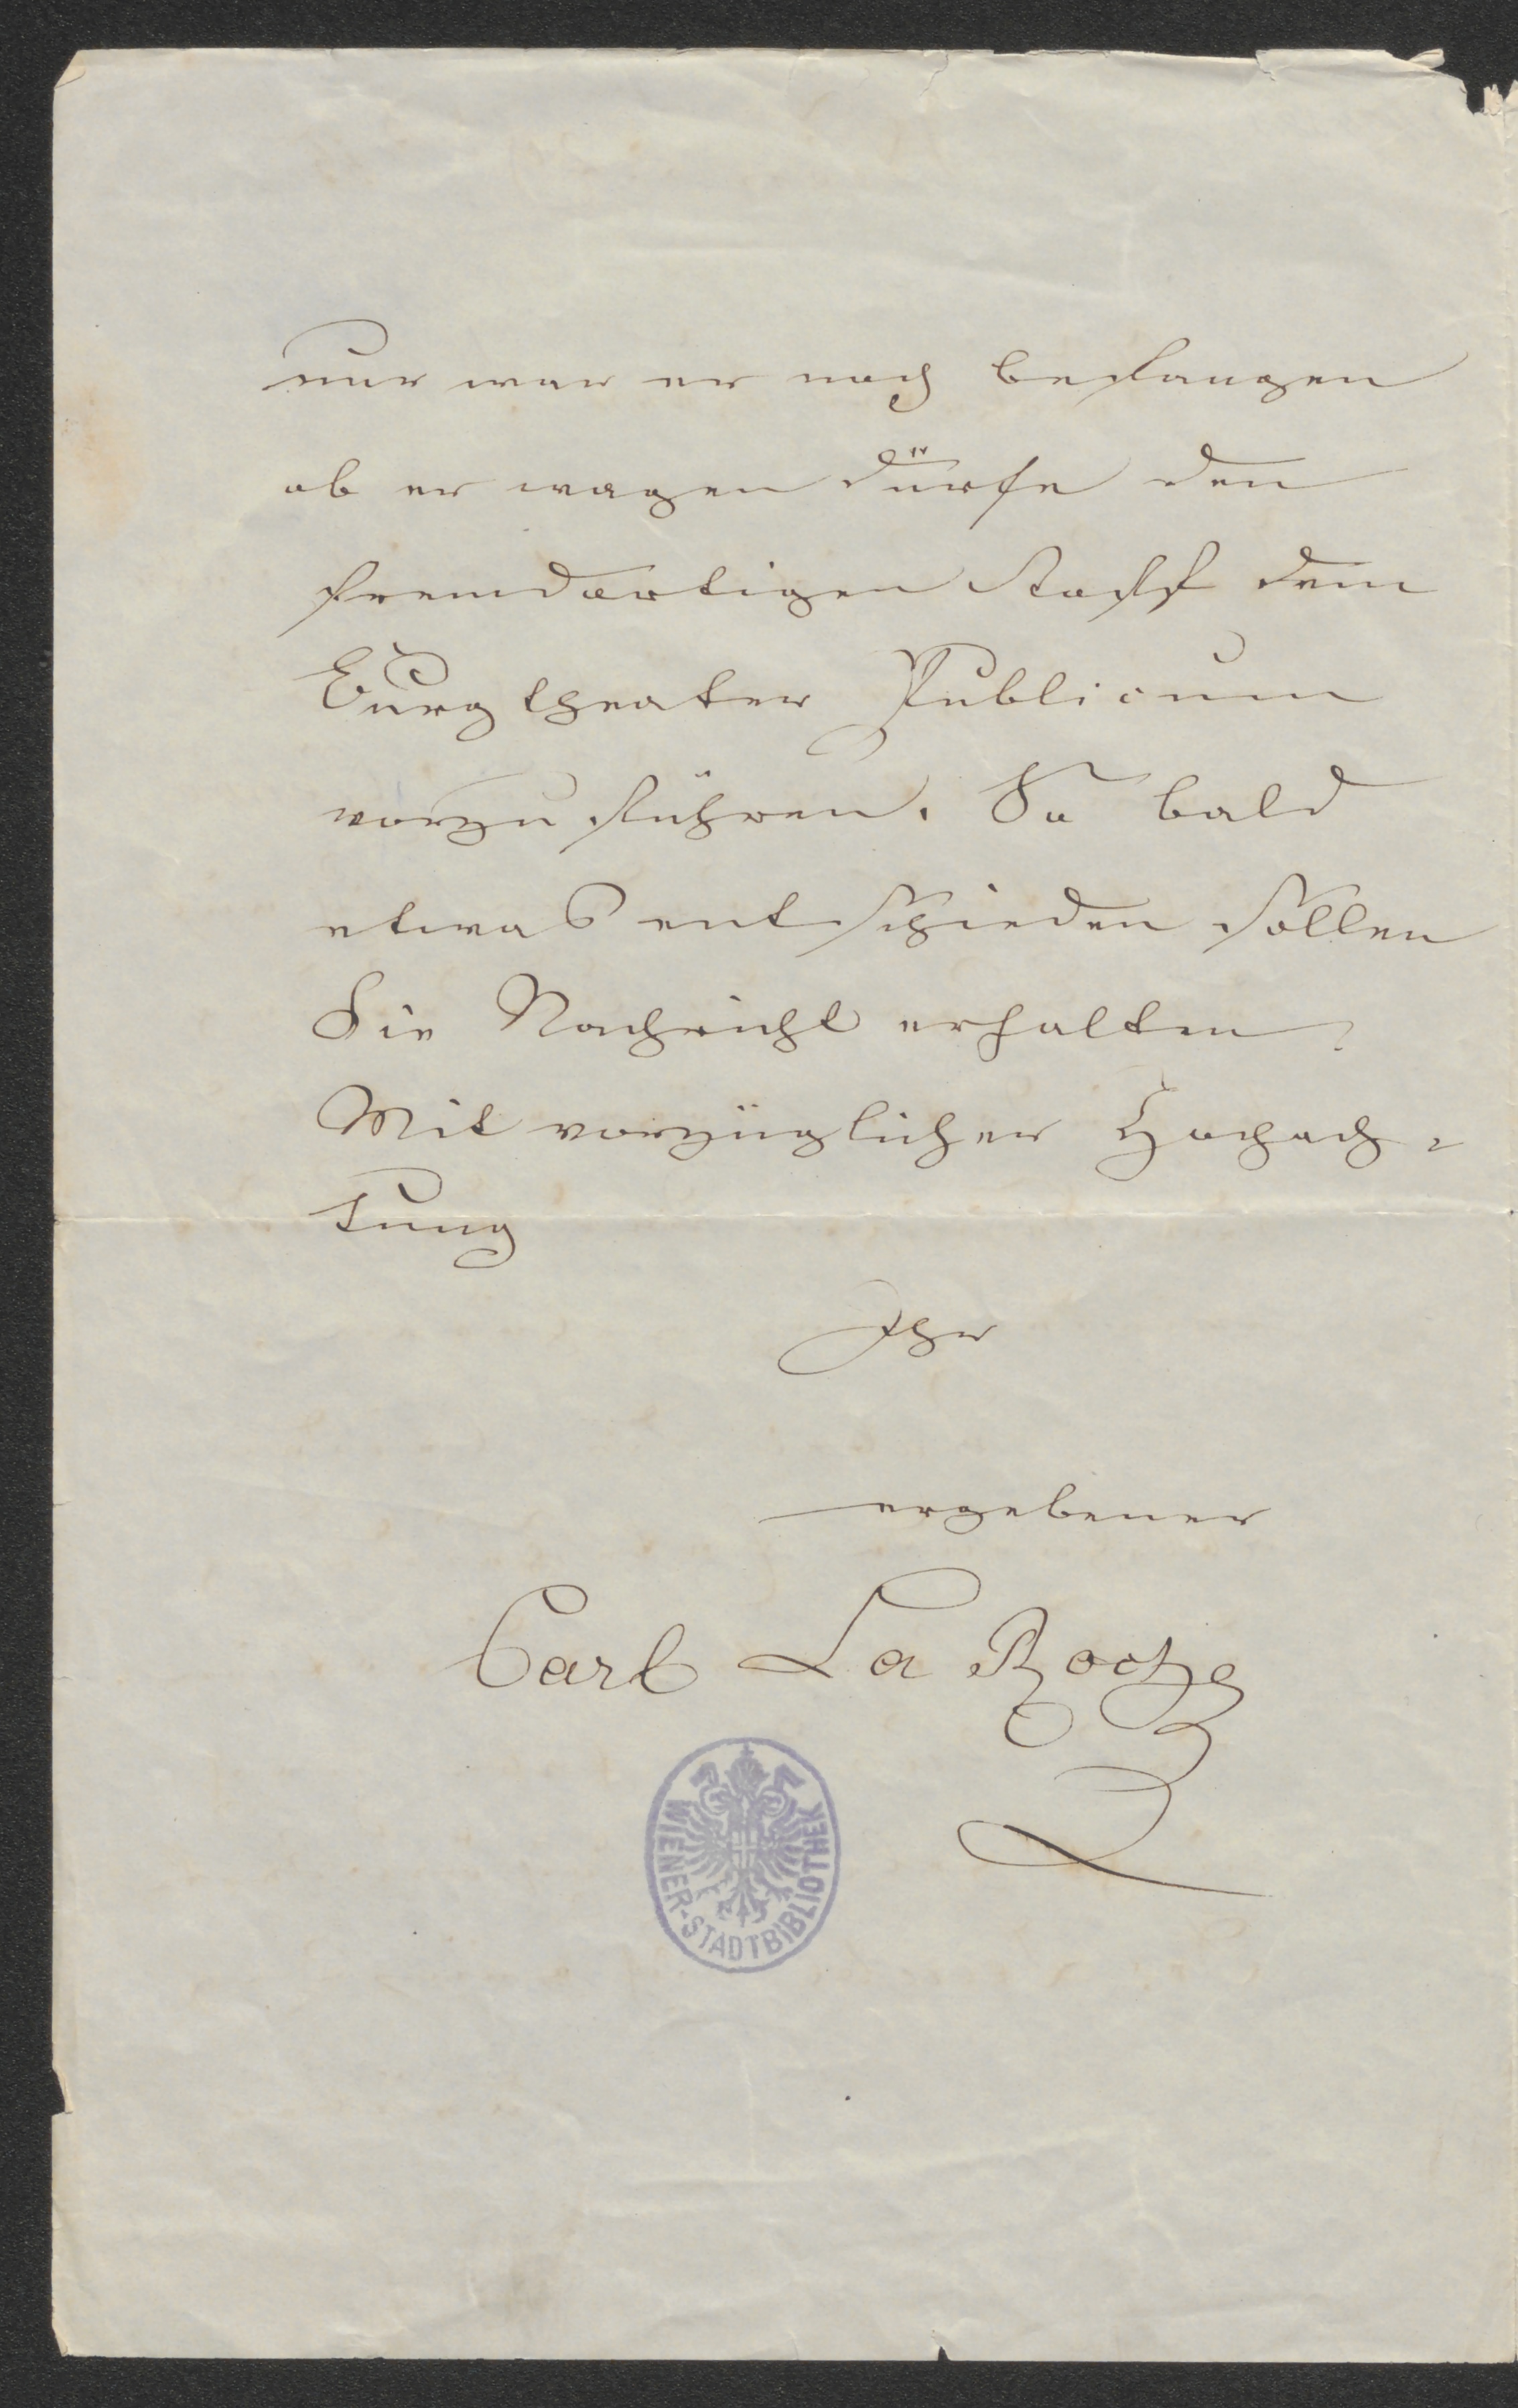 nur war er noch befangen
ob er wagen dürfe den
fremdartigen Stoff dem
Burgtheater Publicum
vorzuführen. So bald
etwas entschieden sollen
Sie Nachricht erhalten.
Mit vorzüglicher Hochach-
tung
Ihr
ergebener
Carl La Roche
WIENER-STADTBIBLIOTHEK